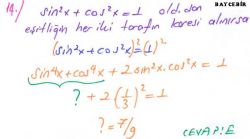 BAYÇEBİR
14.) sin²x + cos²x = 1 old.dan
eşitliğin her iki tarafın karesi alınırsa
(sin²x + cos²x)² = (1)²
sin⁴x + cos⁴x + 2 sin²x . cos²x = 1
? + 2 (1/3)² = 1
? = 7/9
CEVAP: E